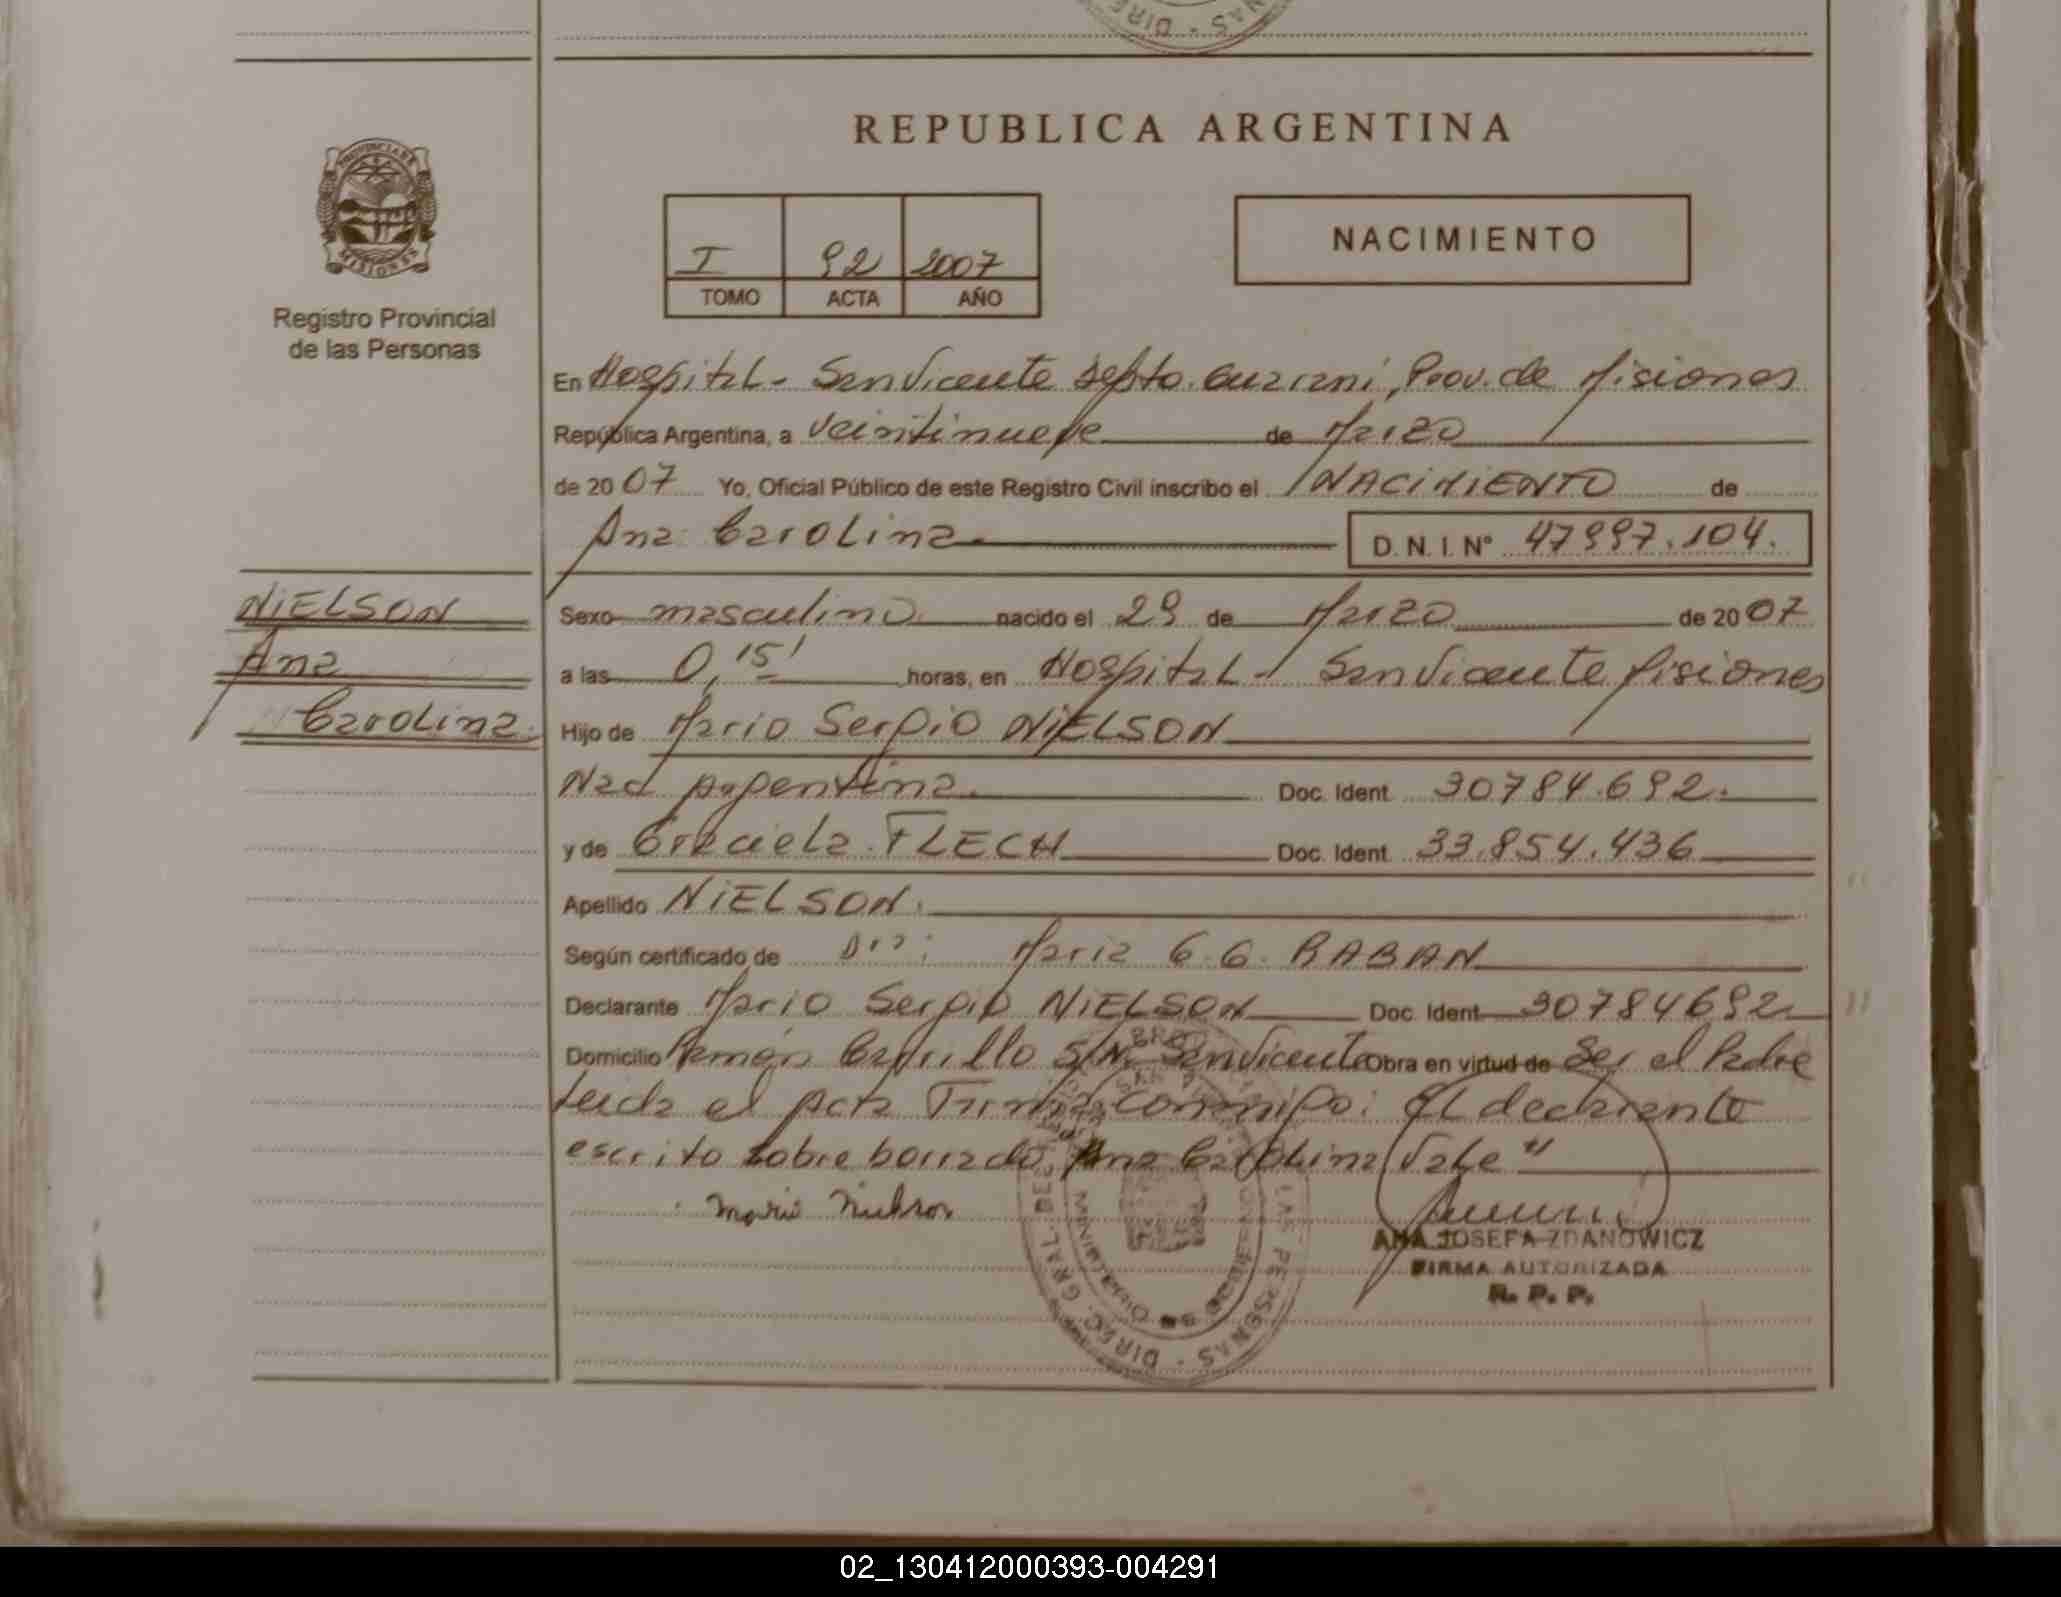 REPUBLICA ARGENTINA
PROVINCIA DE
MISIONES
Registro Provincial
de las Personas
I 92 2007
TOMO ACTA AÑO
NACIMIENTO
En Hospital - San Vicente Depto. Guaraní, Prov. de Misiones
República Argentina, a Veintinueve de Marzo
de 2007 Yo, Oficial Público de este Registro Civil inscribo el NACIMIENTO de
Ana Carolina D. N. I. Nº 47997.104.
NIELSON
Ana
Carolina.
Sexo masculino nacido el 29 de Marzo de 2007
a las 0,15' horas, en Hospital - San Vicente Misiones
Hijo de Mario Sergio NiELSON
Nac Argentina. Doc. Ident. 30784.692.
y de Graciela FLECH Doc. Ident. 33.854.436
Apellido NiELSON.
Según certificado de Maria G. G. RABAN
Declarante Mario Sergio NiELSON Doc. Ident. 30784692
Domicilio Ramón Carrillo S/N. San Vicente Obra en virtud de Ser el Padre
Leida el Acta Firma conmigo: El declarante
escrito sobre borrado Ana Carolina Vale"
ANA JOSEFA ZDANOWICZ
FIRMA AUTORIZADA
R. P. P.
02_130412000393-004291